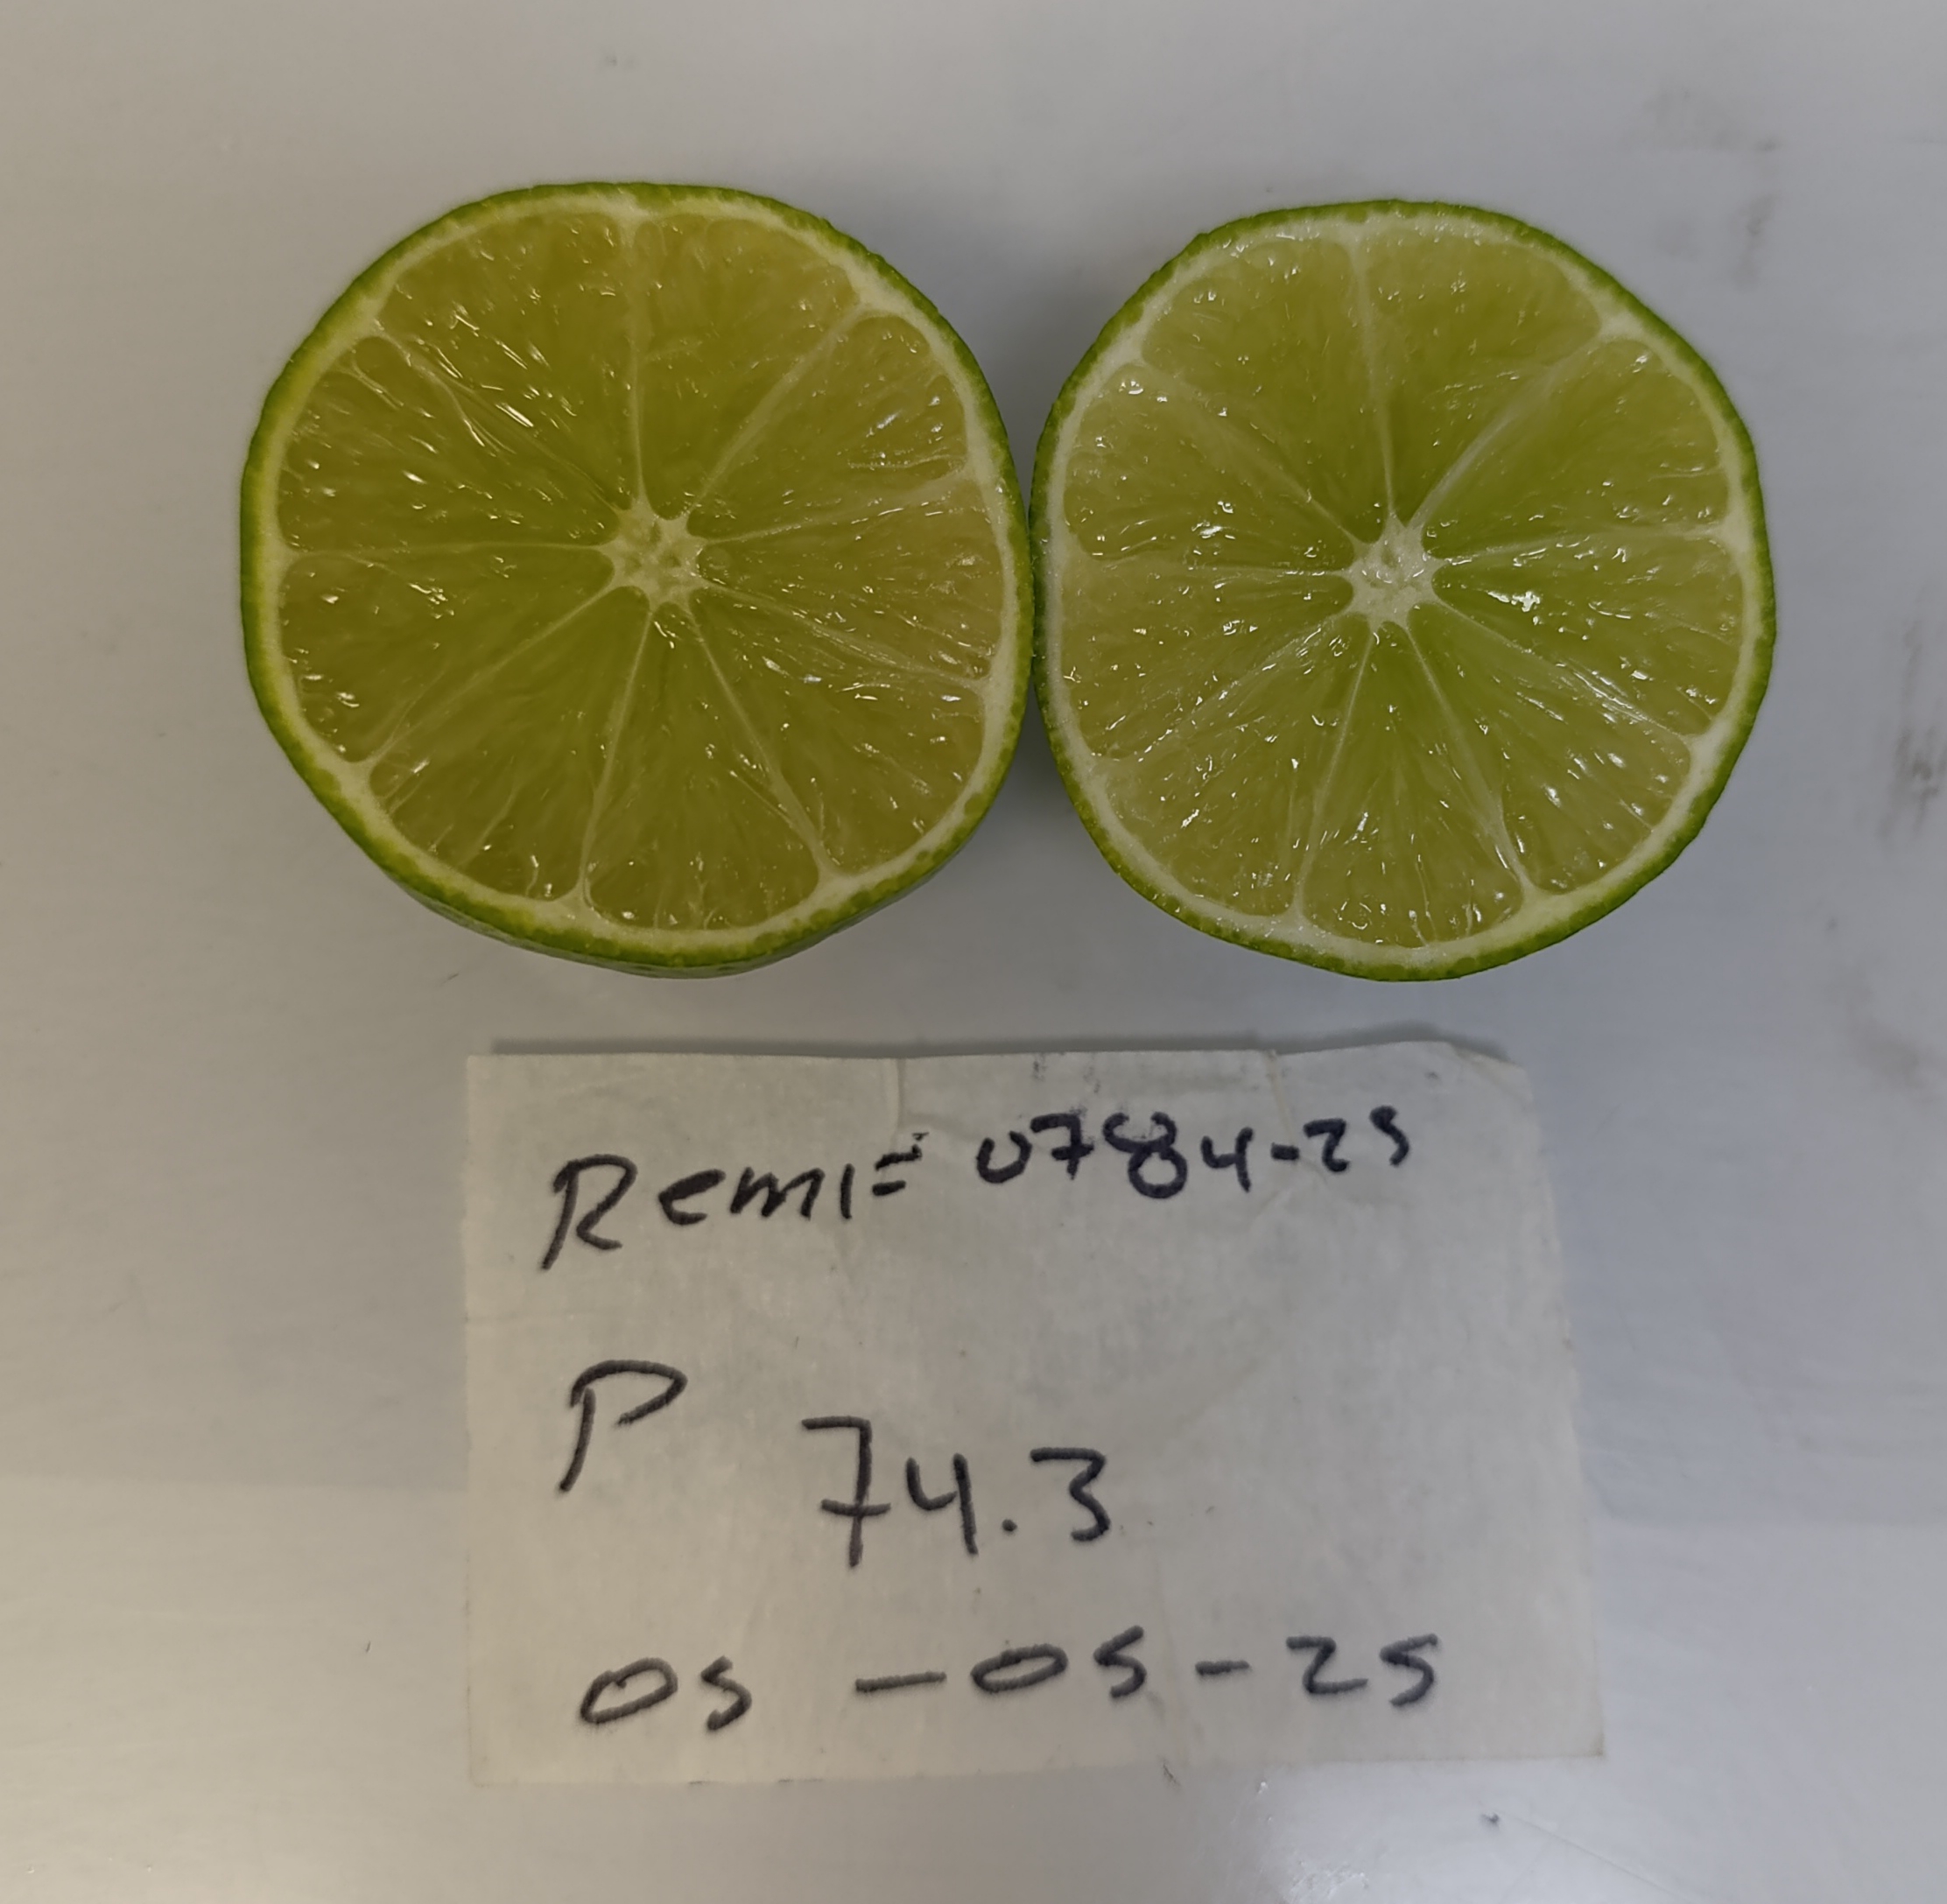 Remi= 0784-25
P
74.3
05-05-25